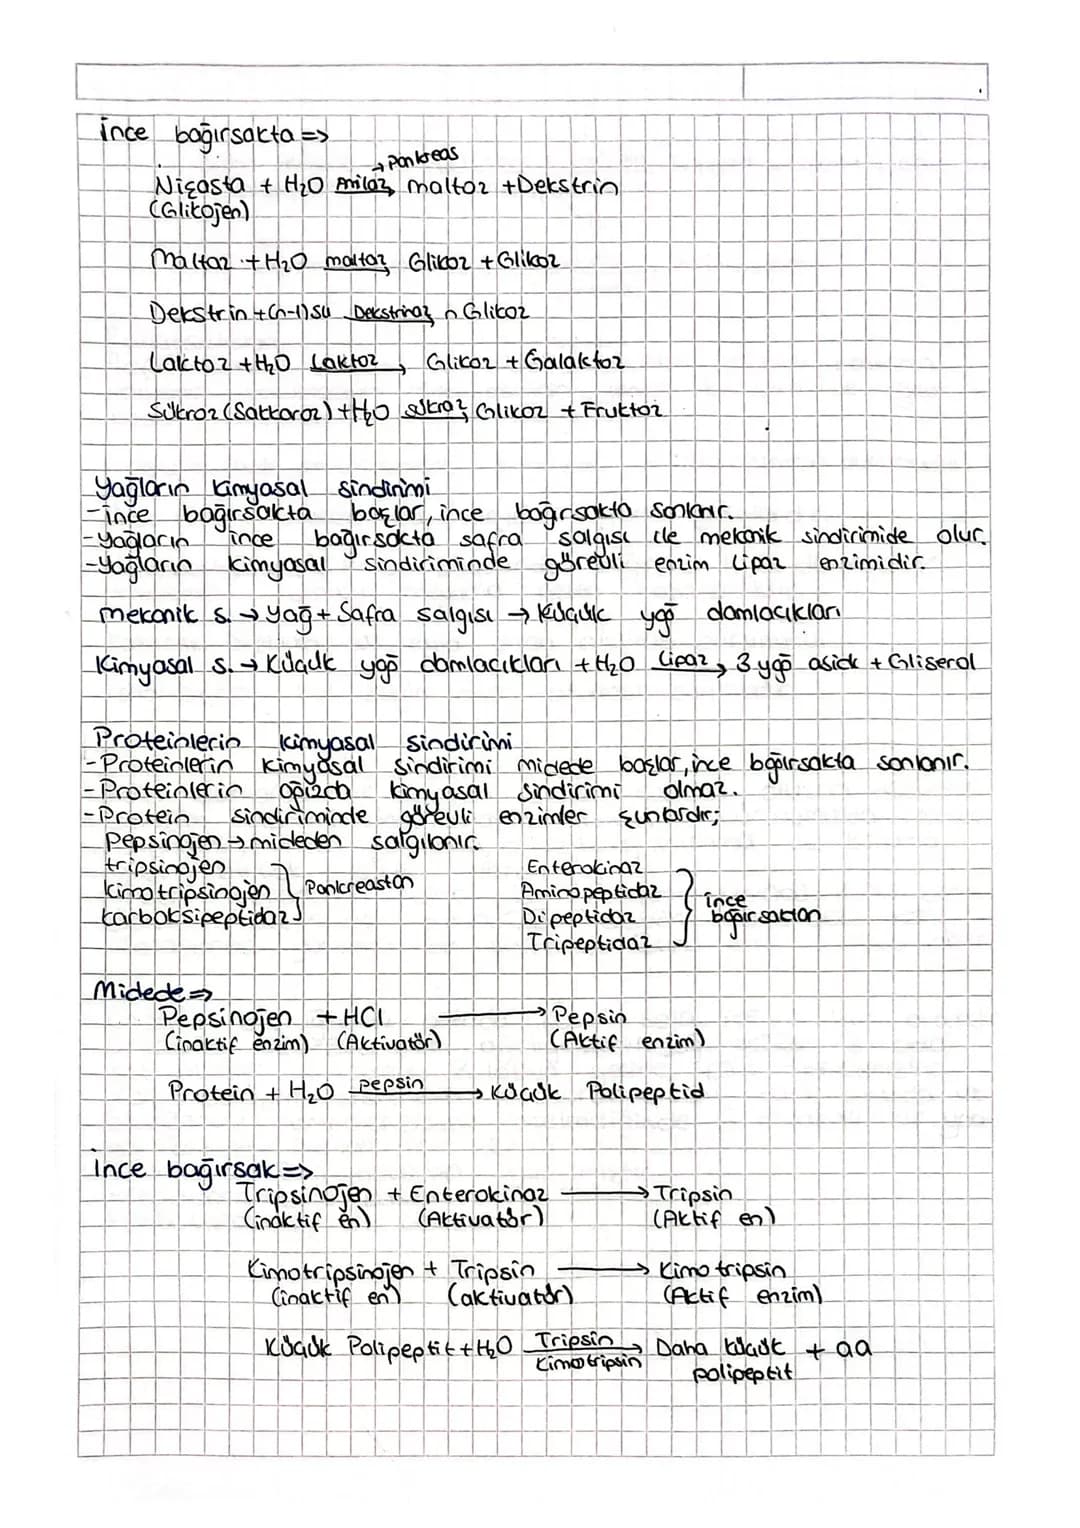 İnce bağırsakta =>
→ Pankreas
Nişasta + H₂O Amilaz→ maltoz + Dekstrin
(Glikojen)
Maltoz + H₂O maltaz→ Glikoz + Glikoz
Dekstrin + (n-1) su Dekstrinaz→ n Glikoz
Laktoz + H₂O Laktoz→ Glikoz + Galaktoz
Sükroz (Sakkaroz) + H₂O sükraz→ Glikoz + Fruktoz
Yağların kimyasal sindirimi
- ince bağırsakta başlar, ince bağırsakta sonlanır.
- Yağların ince bağırsakta safra salgısı ile mekanik sindirimide olur.
- Yağların kimyasal sindiriminde görevli enzim Lipaz enzimidir.
mekanik s. → yağ + Safra salgısı → Küçük yağ damlacıkları
Kimyasal s. → Küçük yağ damlacıkları + H₂O Lipaz→ 3 yağ asidi + Gliserol
Proteinlerin kimyasal sindirimi
- Proteinlerin kimyasal sindirimi midede başlar, ince bağırsakta sonlanır.
- Proteinlerin ağızda kimyasal sindirimi olmaz.
- Protein sindiriminde görevli enzimler şunlardır;
Pepsinojen → mideden salgılanır.
tripsinojen
kimotripsinojen } Pankreastan
karboksipeptidaz
Enterokinaz
Aminopeptidaz
Dipeptidaz } ince bağırsaktan
Tripeptidaz
Midede =>
Pepsinojen + HCl → Pepsin
(inaktif enzim) (Aktivatör) (Aktif enzim)
Protein + H₂O pepsin→ Küçük Polipeptid
İnce bağırsak =>
Tripsinojen + Enterokinaz → Tripsin
(inaktif en) (Aktivatör) (Aktif en)
Kimotripsinojen + Tripsin → Kimotripsin
(inaktif en) (aktivatör) (Aktif enzim)
Küçük Polipeptit + H₂O Tripsin→ Daha küçük + aa
Kimotripsin polipeptit